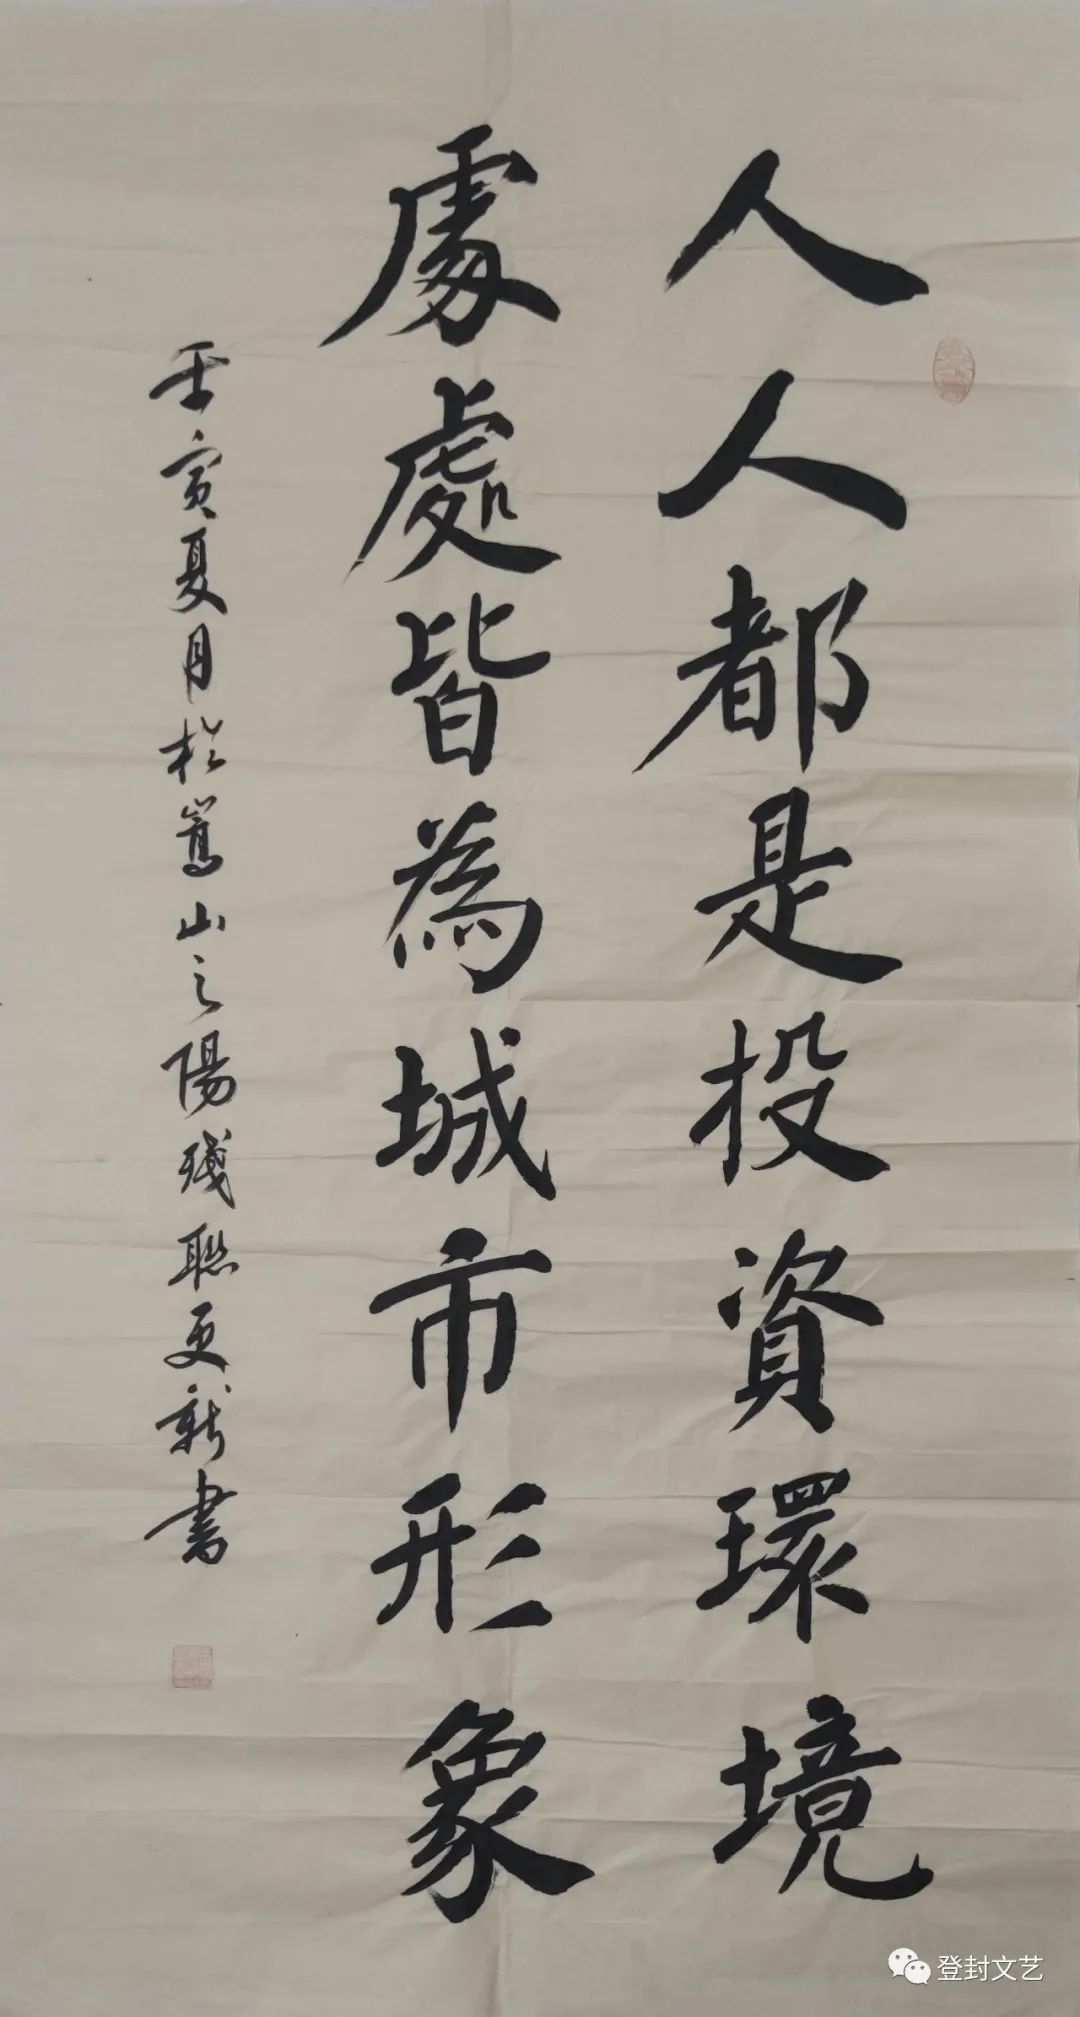 人人都是投資環境
處處皆為城市形象
壬寅夏月於嵩山之陽殘聯更新書
登封文艺